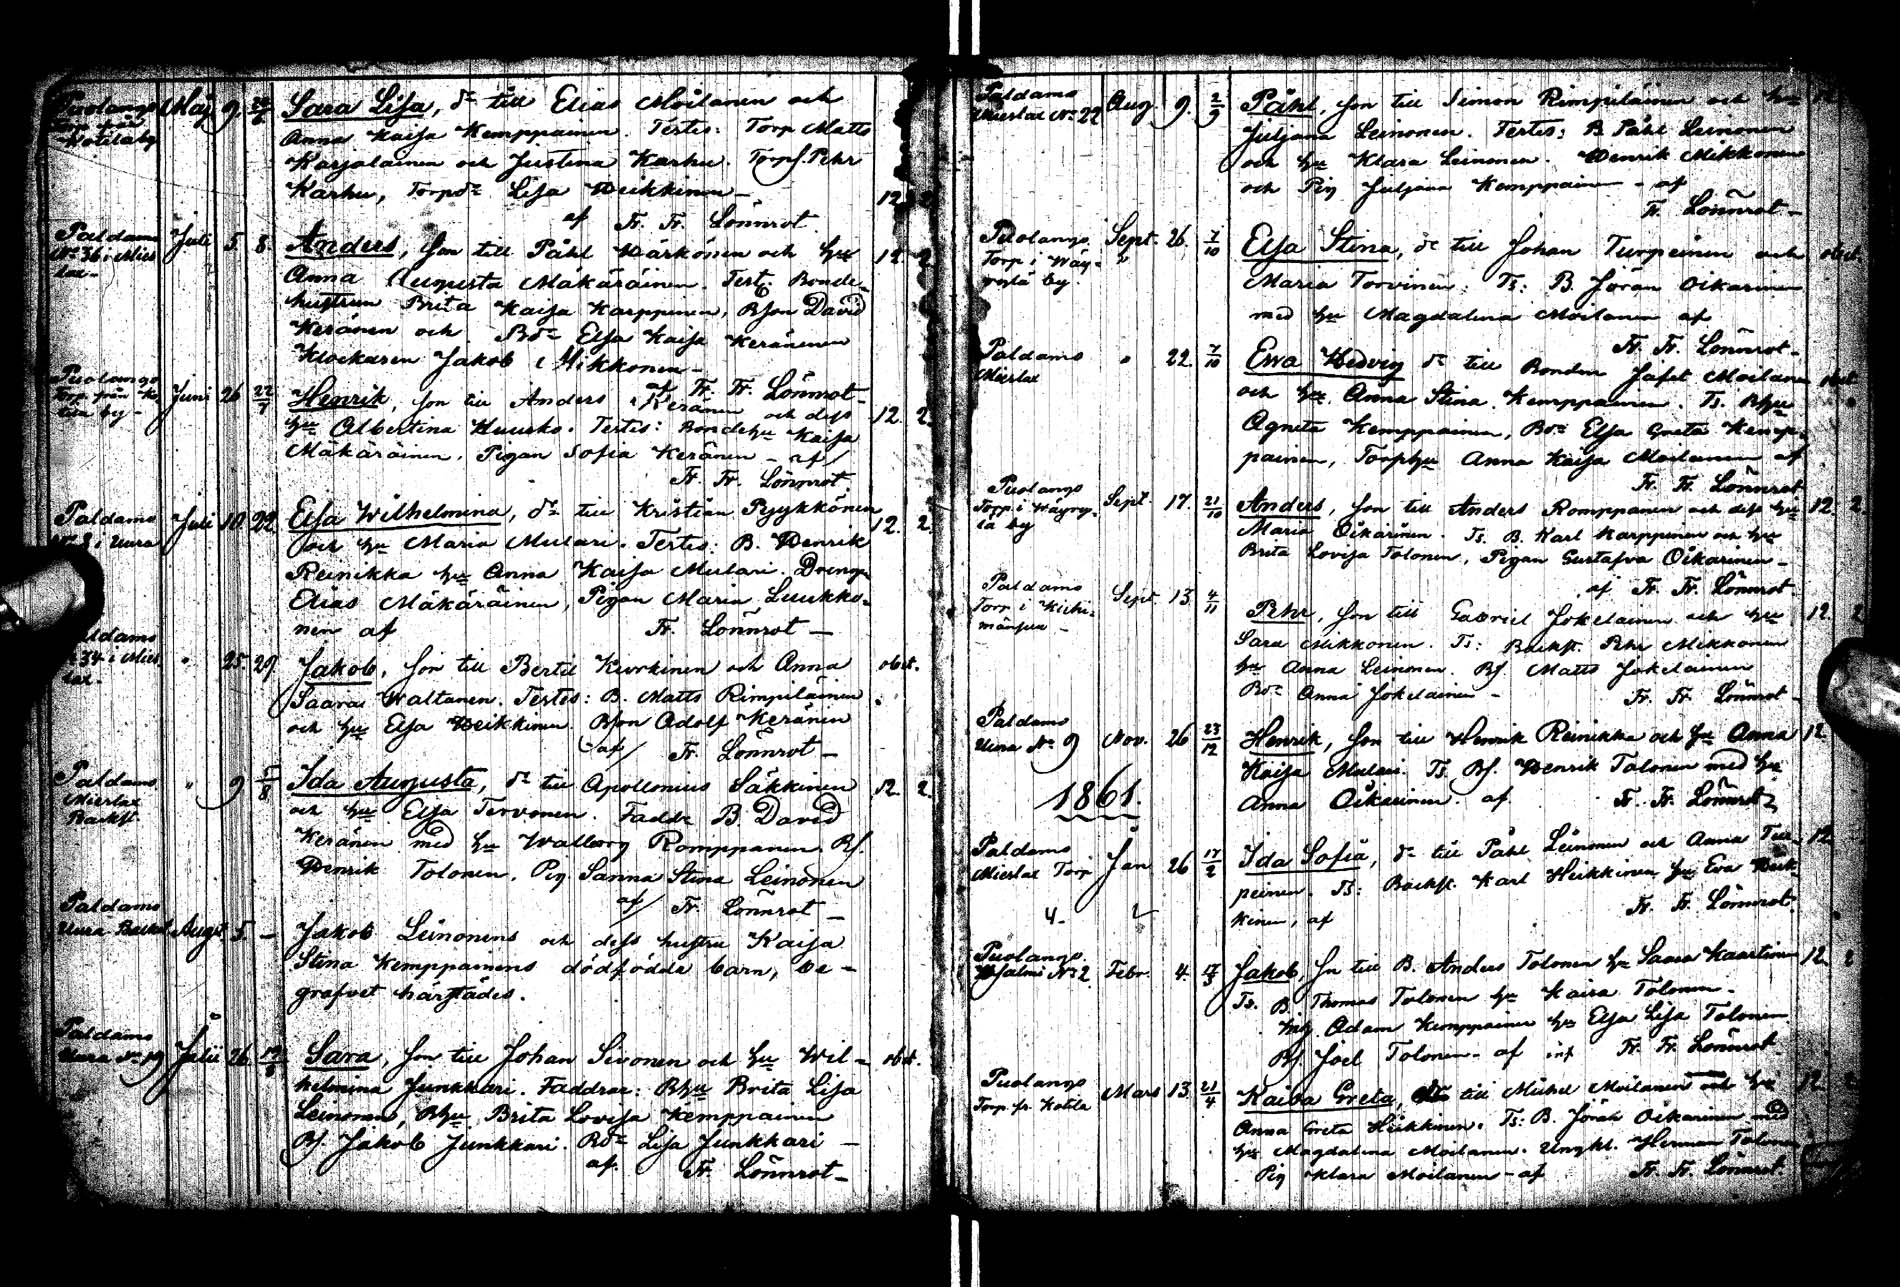 Puolango Maj 9. Sara Lisa, dr till Elias Moilanen och
Kotila by Anna Kaisa Kemppainen. Testes: Torp Matts
Karjalainen och Justina Karhu. Torps. Pehr
Karhu, Torpdr Lisa Heikkinen 12. 2.
af Fr. Fr. Lönnrot.
Paldamo Juli 5. 8. Anders, son till Påhl Härkönen och hu 12. 2.
No 36 i Mies Anna Augusta Mäkäräinen. Test: Bonde-
lax - hustrun Brita Kaisa Karppinen, Bson David
Keränen och Bdr Elsa Kaisa Keränen
Klockaren Jakob Mikkonen -
af Fr. Fr. Lönnrot -
Puolango Juni 26 22/7 Henrik, son till Anders Keränen och dess 12. 2.
Torp från Ko
tila by - hu Albertina Huusko. Testes: Bondehu Kaisa
Mäkäräinen. Pigan Sofia Keränen - af
Fr. Fr. Lönnrot
Paldamo Juli 10. 22. Elsa Wilhelmina, dr till Kristian Pyykkönen 12. 2.
No 8 i Uura och hu Maria Mulari. Testes: B. Henrik
Reinikka hu Anna Kaisa Mulari. Dreng
Elias Mäkäräinen, Pigan Maria Luukko-
nen af Fr. Lönnrot -
Paldamo
34 i Mies " 25. 29. Jakob, son till Bertil Kurkinen och Anna obiit.
lax - Saara Waltanen. Testes: B. Matts Rimpiläinen
och hu Elsa Heikkinen. Bson Adolf Keränen
af Fr. Lönnrot -
Paldamo " 9 5/8 Ida Augusta, dr till Apollonius Säkkinen 12. 2.
Mieslax
Backst. och hu Elsa Tervonen. Faddr B. David
Keränen med hu Walborg Romppanen Bs.
Henrik Tolonen. Pig Sanna Stina Leinonen
af Fr. Lönnrot -
Paldamo
Uura Backst. Augst 5. - Jakob Leinonens och dess hustru Kaisa
Stina Kemppainens dödfödda barn, be-
grafvet härstädes.
Paldamo
Uura No 19 Julii 26. 19/8 Sara, son till Johan Sivonen och hu Wil- obiit.
helmina Junkkari. Faddrar: Bhu Brita Lisa
Leinonen, Bhu Brita Lovisa Kemppainen
Bs. Jakob Junkkari. Bdr Lisa Junkkari -
af Fr. Lönnrot -
Paldamo
Mieslax No 22 Aug. 9. 2/9 Påhl, son till Simon Rimpiläinen och hu 12.
Juljana Leinonen. Testes: B. Påhl Leinonen
och hu Klara Leinonen. Henrik Mikkonen
och Pig Juljana Kemppainen - af
Fr. Lönnrot -
Puolango Sept. 26. 7/10 Elsa Stina, dr till Johan Turpeinen och obiit.
Torp i Wäy-
rylä by. Maria Torvinen. Ts: B. Jöran Oikarinen
med hu Magdalena Moilanen af
Fr. Fr. Lönnrot -
Paldamo
Mieslax " 22. 7/10 Ewa Hedvig dr till Bonden Jafet Moilanen obiit
och hu Anna Stina Kemppainen. Ts. Bhu
Agneta Kemppainen, Bdr Elsa Greta Kemp-
painen, Torphu Anna Kaisa Moilanen af
Fr. Fr. Lönnrot
Puolango Sept. 17. 21/10 Anders, son till Anders Romppanen och dess hu 12. 2.
Torp i Wäyry-
lä by Maria Oikarinen. Ts. B. Karl Karppinen och hu
Brita Lovisa Tolonen, Pigan Gustafva Oikarinen -
af Fr. Fr. Lönnrot -
Paldamo Sept. 13. 4/11 Pehr, son till Gabriel Jokelainen och hu 12. 2
Torp i Kiehi-
mänsuu - Sara Mikkonen. Ts: Backst. Pehr Mikkonen
hu Anna Leinonen. Bs. Matts Jokelainen
Bdr Anna Jokelainen - Fr. Fr. Lönnrot -
Paldamo
Uura No 9 Nov. 26 23/12 Henrik, son till Henrik Reinikka och hu Anna 12.
Kaisa Mulari. Ts. Bs. Henrik Tolonen med hu
Anna Oikarinen. af Fr. Fr. Lönnrot
1861.
Paldamo
Mieslax Torp Jan 26 17/2 Ida Sofia, dr till Påhl Leinonen och Anna Tur- 12.
4. peinen. Ts: Backst. Karl Heikkinen hu Eva Heik-
kinen, af Fr. Fr. Lönnrot.
Puolango
No 2. Febr. 4. Jakob, sn till B. Anders Tolonen hu Saara Kaartinen 12. 2
Ts. B. Thomas Tolonen hu Kaisa Tolonen -
Adam Kemppainen hu Elsa Lisa Tolonen
Bs. Joel Tolonen - af Fr. Fr. Lönnrot.
Puolango
Torp fr. Kotila Mars 13. 21/4 Kaisa Greta dr till Mickel Moilanen och hu 12. 2
Anna Greta Heikkinen. Ts: B. Jöran Oikarinen med
hu Magdalena Moilanen. Ungkl. Herman Tolonen
Pig Klara Moilanen - af Fr. Fr. Lönnrot.